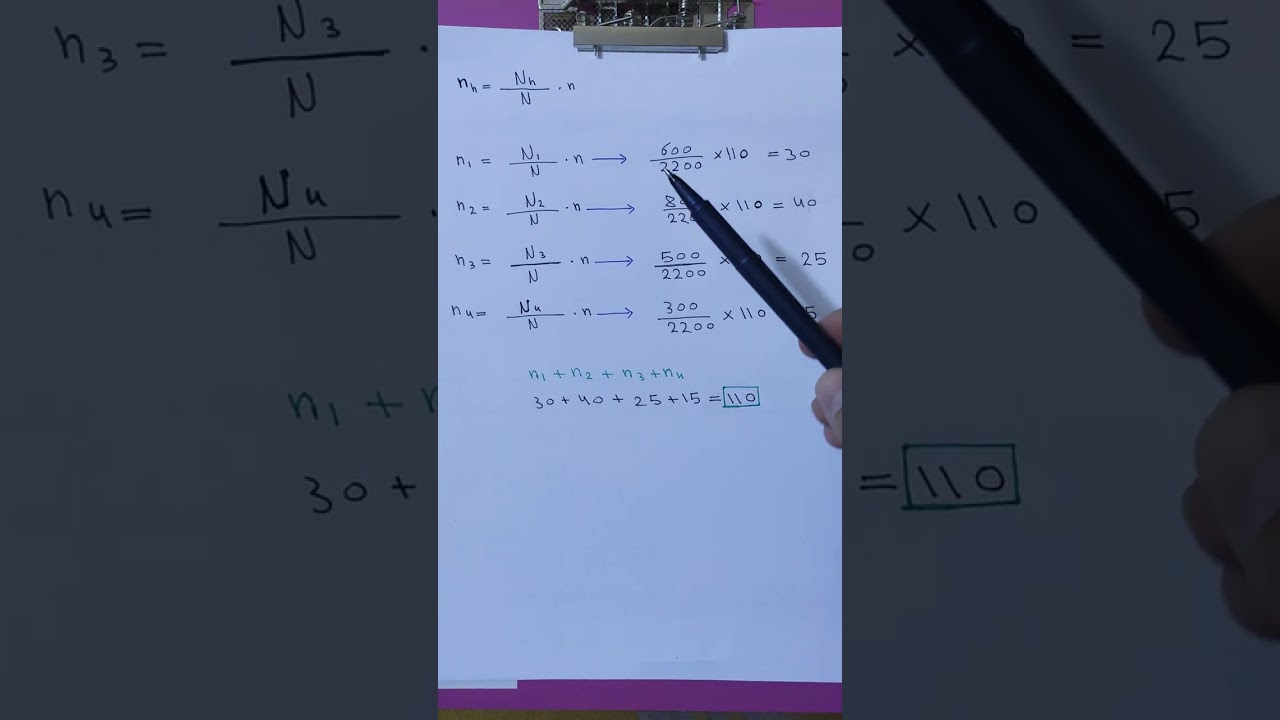 n_h = N_h / N · n
n_1 = N_1 / N · n → 600 / 2200 × 110 = 30
n_2 = N_2 / N · n → 8 / 220 × 110 = 40
n_3 = N_3 / N · n → 500 / 2200 × 0 = 25
n_4 = N_4 / N · n → 300 / 2200 × 110 5
n_1 + n_2 + n_3 + n_4
30 + 40 + 25 + 15 = 110